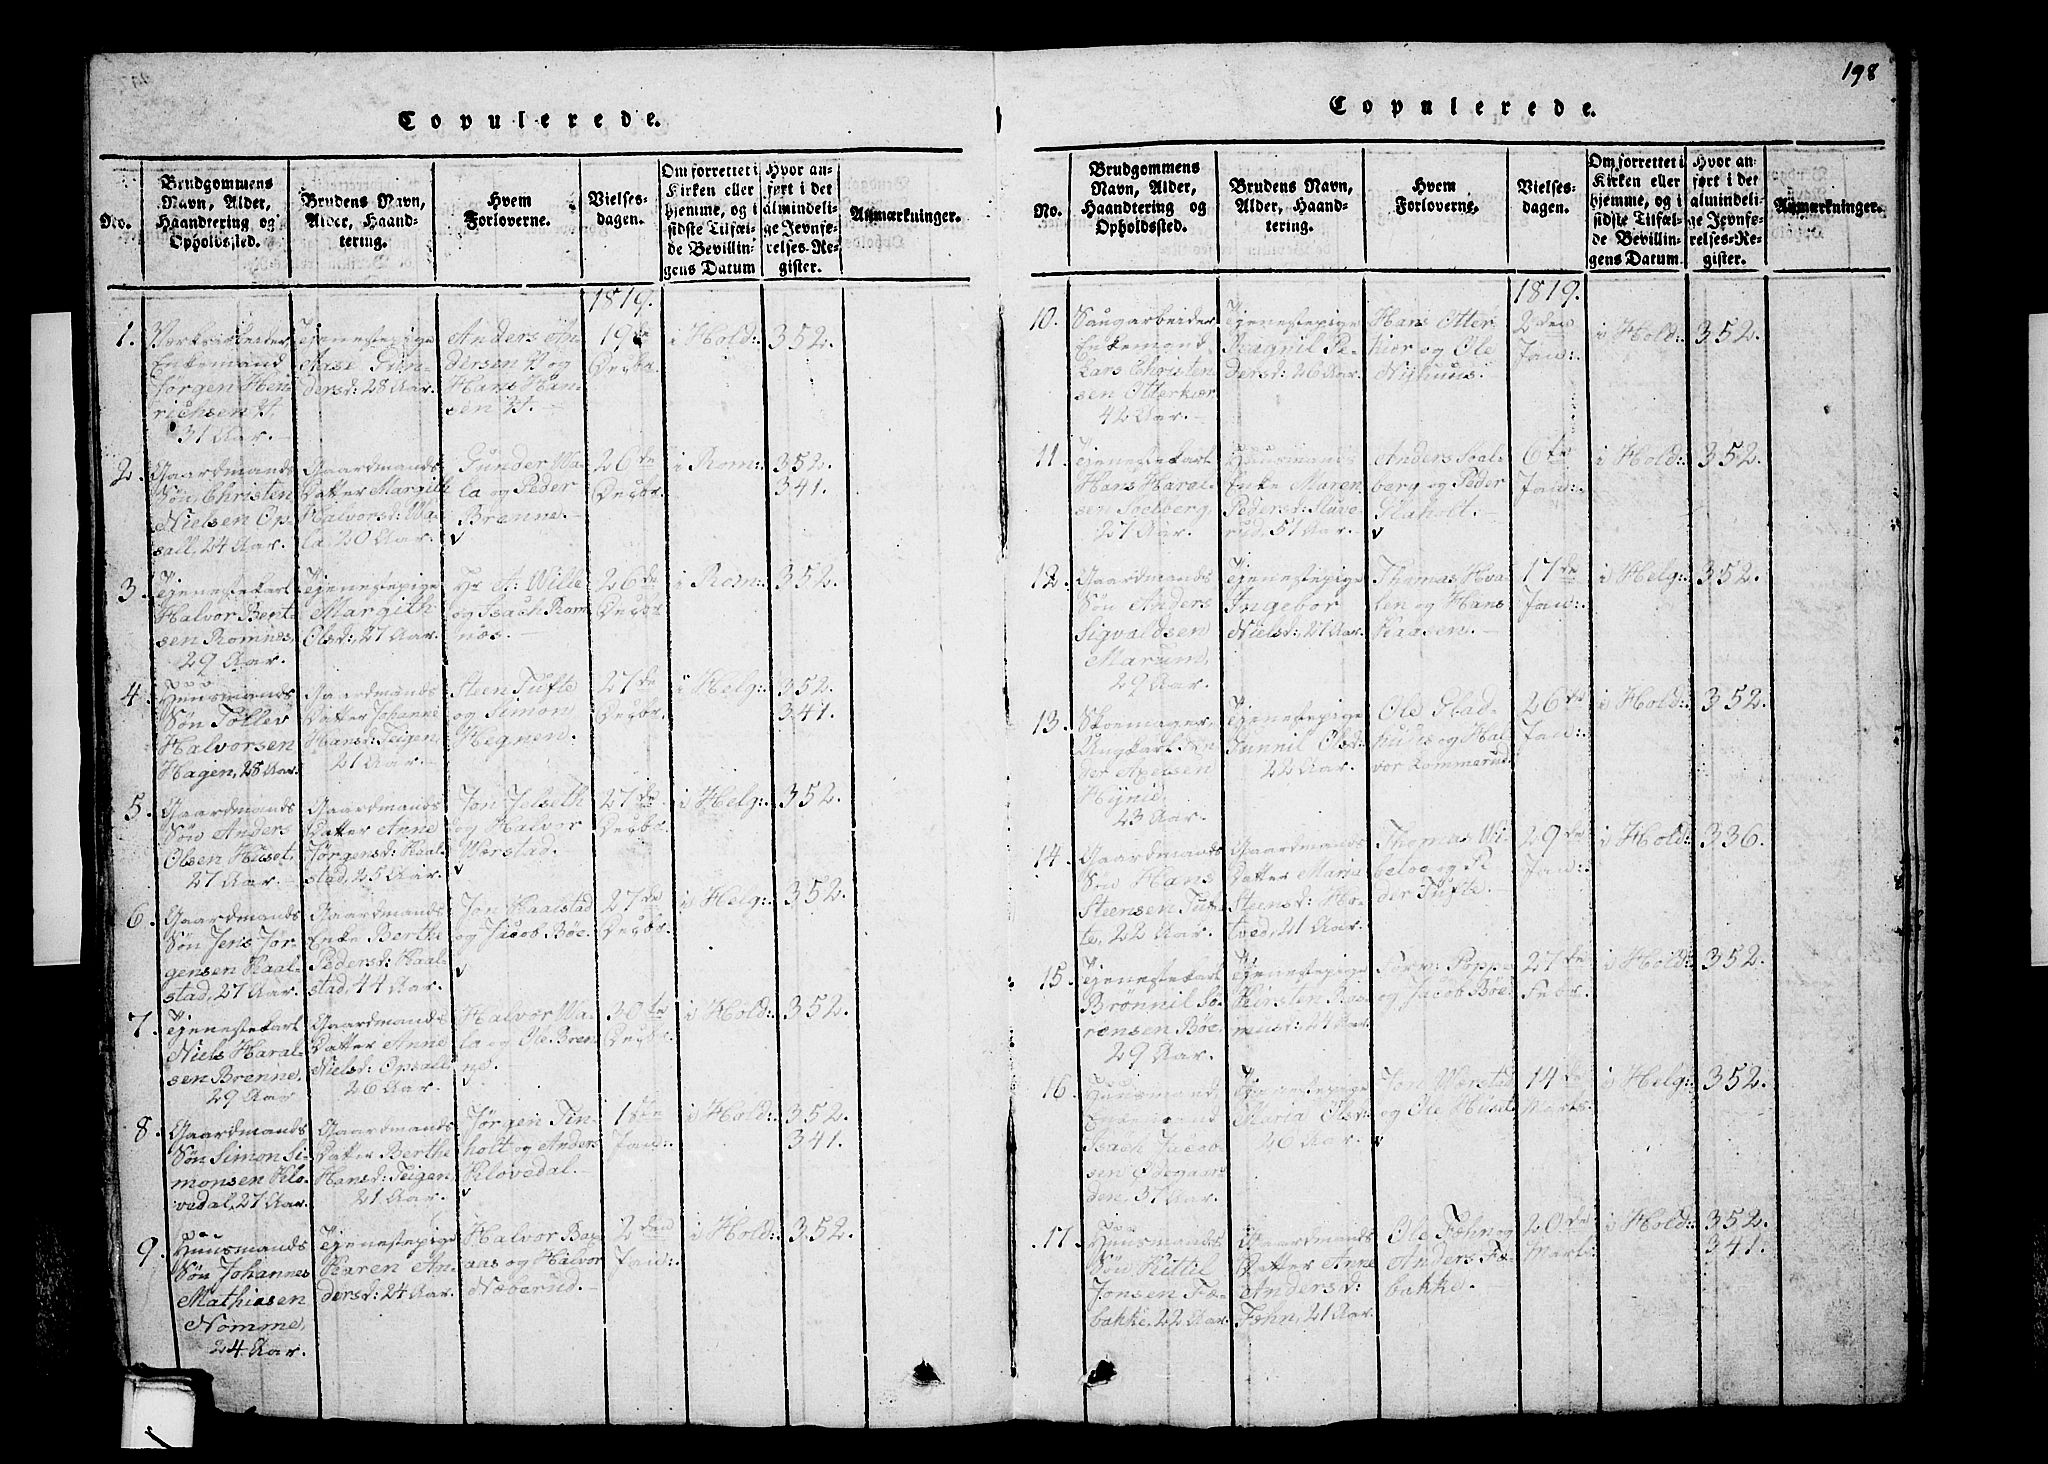 198
Copulerede.
No.
Brudgommens
Navn, Alder,
Haandtering og
Opholdssted.
Brudens Navn,
Alder, Haand-
tering.
Hvem
Forloverne.
Vielses-
dagen.
Om forrettet i
Kirken eller
hjemme, og i
sidste Tilfæl-
de Bevillin-
gens Datum
Hvor an-
ført i det
almindeli-
ge Jevnfø-
relses-Re-
gister.
Anmærkninger.
1819.
1.
Enkemand
Jørgen Hen
richsen
31 Aar.
Tjenestepige
Aase Gun-
dersd: 28 Aar.
Anders An
dersen og
Hans Han-
sen
19de
Decbr.
i Hold:
352.
2.
Gaardmands
Søn Christen
Nielsen Op-
sall, 24 Aar.
Gaardmands
Datter Margith
Halvorsd: Wa-
la, 20 Aar.
Gunder Wa-
la og Peder
Brenne.
26de
Decbr.
i Rom:
352.
341.
3.
Tjenestekarl
Halvor Bert
sen Romnes,
29 Aar.
Tjenestepige
Margith
Olsd: 27 Aar.
Hr A: Wille
og Isach Rom
næs.
26de
Decbr
i Rom:
352.
4.
Huusmands
Søn Tollev
Halvorsen
Hagen, 28 Aar.
Gaardmands
Datter Johanne
Hansd: Teigen,
21 Aar.
Steen Tufte
og Simon
Hegnen.
27de
Decbr.
i Helg:
352.
341.
5.
Gaardmands
Søn Anders
Olsen Huset,
27 Aar.
Gaardmands
Datter Anne
Jørgensd: Kaal-
stad, 25 Aar.
Jon Jelseth
og Halvor
Wærstad.
27de
Decbr.
i Helg:
352.
6.
Gaardmands
Søn Jens Jør-
gensen Kaal-
stad, 27 Aar.
Gaardmands
Enke Berthe
Pedersd: Kaal-
stad, 44 Aar.
Jon Kaalstad
og Jacob Bøe.
27de
Decbr.
i Helg:
352.
7.
Tjenestekarl
Niels Haral-
sen Brenne,
29 Aar
Gaardmands
Datter Anne
Nielsd: Opsall
26 Aar.
Halvor Wa-
la og Ole Bren
ne.
30te
Decbr.
i Hold:
352.
8.
Gaardmands
Søn Simon Si-
monsen Klo-
vedal, 27 Aar.
Gaardmands
Datter Berthe
Hansd: Teigen,
21 Aar.
Jørgen Tin-
holt og Anders
Klovedal.
1ste
Jan:
i Hold:
352.
341.
9.
Huusmands
Søn Johannes
Mathiesen
Nomme,
24 Aar.
Tjenestepige
Karen An-
dersd: 24 Aar.
Halvor Bax
aas og Halvor
Næberud.
2den
Jan:
i Hold:
352.
Copulerede.
No.
Brudgommens
Navn, Alder,
Haandtering og
Opholdssted.
Brudens Navn,
Alder, Haand-
tering.
Hvem
Forloverne.
Vielses-
dagen.
Om forrettet i
Kirken eller
hjemme, og i
sidste Tilfæl-
de Bevillin-
gens Datum.
Hvor an-
ført i det
almindeli-
ge Jevnfø-
relses-Re-
gister.
Anmærkninger.
1819.
10.
Saugarbeider
Enkemand
Lars Christen
sen Otterkiær
42 Aar.
Tjenestepige
Ragnil Pe-
dersd: 26 Aar.
Hans Otter
kiær og Ole
Nyhuus.
2den
Jan:
i Hold:
352.
11.
Tjenestekarl
Hans Haral-
sen Solberg,
27 Aar.
Huusmands
Enke Maren
Pedersd: Sluve-
rud, 51 Aar.
Anders Aal-
berg og Peder
Slaholt.
6te
Jan:
i Hold:
352.
12.
Gaardmands
Søn Anders
Sigvaldsen
Marum,
29 Aar.
Tjenestepige
Ingebor
Nielsd: 27 Aar.
Thomas Hva-
len og Hans
Kaasen.
17de
Jan:
i Helg:
352.
13.
Skoemager,
Ungkarl Gun
der Axelsen
Hynie,
23 Aar.
Tjenestepige
Gunnil Olsd:
22 Aar.
Ole Slad-
huus og Hal
vor Kommerud
26te
Jan:
i Hold:
352.
14.
Gaardmands
Søn Hans
Steensen Tuf-
te, 22 Aar.
Gaardmands
Datter Maria
Steensd: Ho-
tved, 21 Aar.
Thomas Wi-
beloe og Pe
der Tufte.
29de
Jan:
i Hold:
336.
15.
Tjenestekarl
Brønnil Sø-
rensen Bøe,
29 Aar.
Tjenestepige
Kirsten Ras-
musd: 24 Aar.
Forv: Poppe
og Jacob Bøe.
27de
Febr.
i Hold:
352.
16.
Huusmand,
Enkemand
Isach Jacob
sen Ødegaar
den, 37 Aar.
Tjenestepige
Maria Olsd:
26 Aar.
Jon Wærstad
og Ole Huset
14de
Marts.
i Helg:
352.
17.
Huusmands
Søn Kittil
Jonsen Fæ-
bakke, 22 Aar.
Gaardmands
Datter Anne
Andersd:
Fæhn, 21 Aar.
Ole Fæhn og
Anders Fæ-
bakke.
20de
Mart:
i Hold:
352.
341.